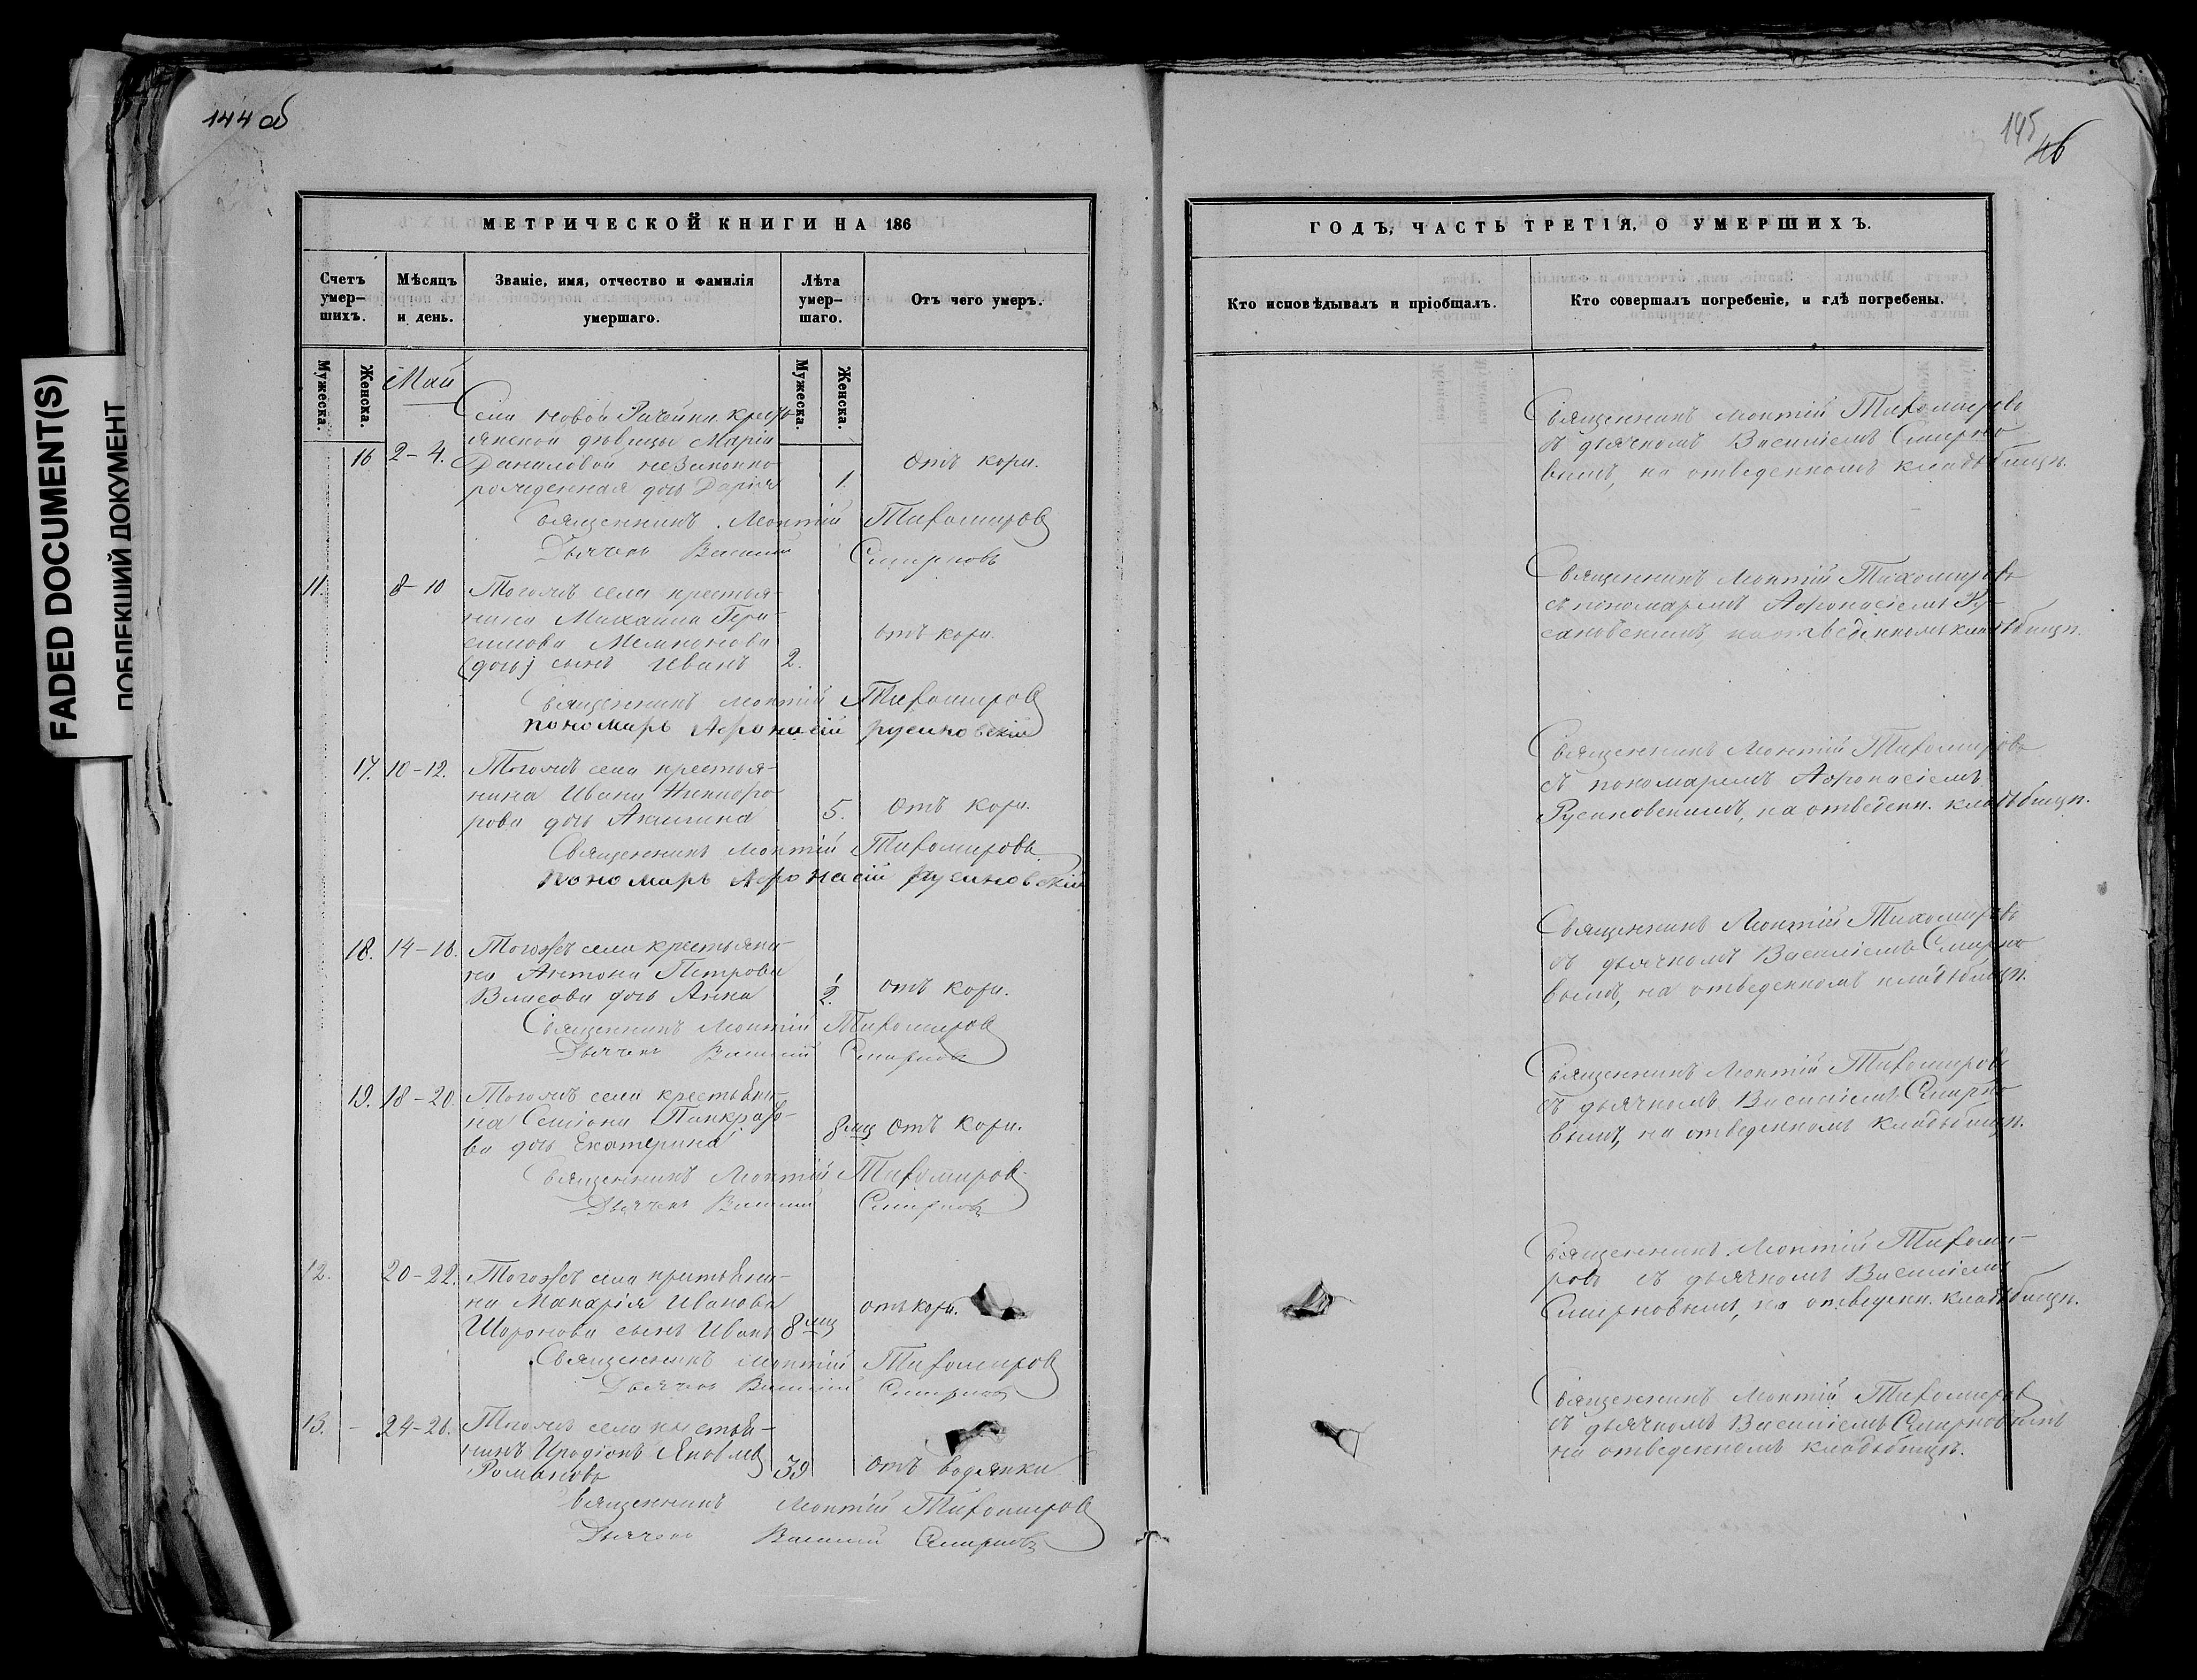 144 об
145
46
FADED DOCUMENT(S)
ПОБЛЕКШИЙ ДОКУМЕНТ
МЕТРИЧЕСКОЙ КНИГИ НА 186
Счетъ умер-шихъ.
Мѣсяцъ и день.
Званіе, имя, отчество и фамилія умершаго.
Лѣта умер-шаго.
Отъ чего умеръ.
Мужеска.
Женска.
Мужеска.
Женска.
Май
Села Новой Рачейки кресть-
янской дѣвицы Маріи
16 2-4. Даниловой незаконно- Отъ кори.
рожденная дочь Дарія 1.
Священникъ Леонтій Тихомировъ
Дьячекъ Василій Смирновъ
11. 8-10 Тогожъ села крестья-
нина Михаила Гера-
симова отъ кори.
(дочь) сынъ Иванъ 2.
Священникъ Леонтій Тихомировъ
пономарь Афонасій русановскій
17. 10-12. Тогожъ села крестья-
нина Ивана Никифо-
рова дочь Акилина 5. Отъ кори.
Священникъ Леонтій Тихомировъ
пономарь Афонасій русановскій
18. 14-16. Тогожъ села крестьяни-
на Антона Петрова
Власова дочь Анна 1/2. отъ кори.
Священникъ Леонтій Тихомировъ
Дьячекъ Василій Смирновъ
19. 18-20. Тогожъ села крестьяни-
на Семіона Панкрато-
ва дочь Екатерина 8 мц Отъ кори.
Священникъ Леонтій Тихомировъ
Дьячекъ Василій Смирновъ
12. 20-22. Тогожъ села крестьяни-
на Макарія Иванова отъ кори.
Шоронова сынъ Иванъ 8 мц
Священникъ Леонтій Тихомировъ
Дьячекъ Василій Смирновъ
13. - 24-26. Тогожъ села крестья-
нинъ Иродіонъ Яковлевъ
Романовъ 39 отъ водянки
Священникъ Леонтій Тихомировъ
Дьячекъ Василій Смирновъ
ГОДЪ, ЧАСТЬ ТРЕТІЯ, О УМЕРШИХЪ.
Кто исповѣдывалъ и пріобщалъ.
Кто совершалъ погребеніе, и гдѣ погребены.
Священникъ Леонтій Тихомировъ
съ дьячкомъ Василіемъ Смирно-
вымъ, на отведенномъ кладбищѣ.
Священникъ Леонтій Тихомировъ
съ пономаремъ Афонасіемъ Ру-
сановскимъ, на отведенномъ кладбищѣ.
Священникъ Леонтій Тихомировъ
съ пономаремъ Афонасіемъ
Русановскимъ, на отведенн. кладбищѣ.
Священникъ Леонтій Тихомировъ
съ дьячкомъ Василіемъ Смирно-
вымъ, на отведенномъ кладбищѣ.
Священникъ Леонтій Тихомировъ
съ дьячкомъ Василіемъ Смирно-
вымъ, на отведенномъ кладбищѣ.
Священникъ Леонтій Тихоми-
ровъ съ дьячкомъ Василіемъ
Смирновымъ, на отведенн. кладбищѣ.
Священникъ Леонтій Тихомировъ
съ дьячкомъ Василіемъ Смирновымъ
на отведенномъ кладбищѣ.